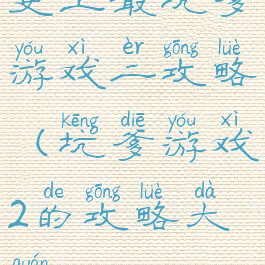 史上最坑爹
yóu xì èr gōng lüè
游戏二攻略
kēng diē yóu xì
(坑爹游戏
de gōng lüè dà
2的攻略大
quán